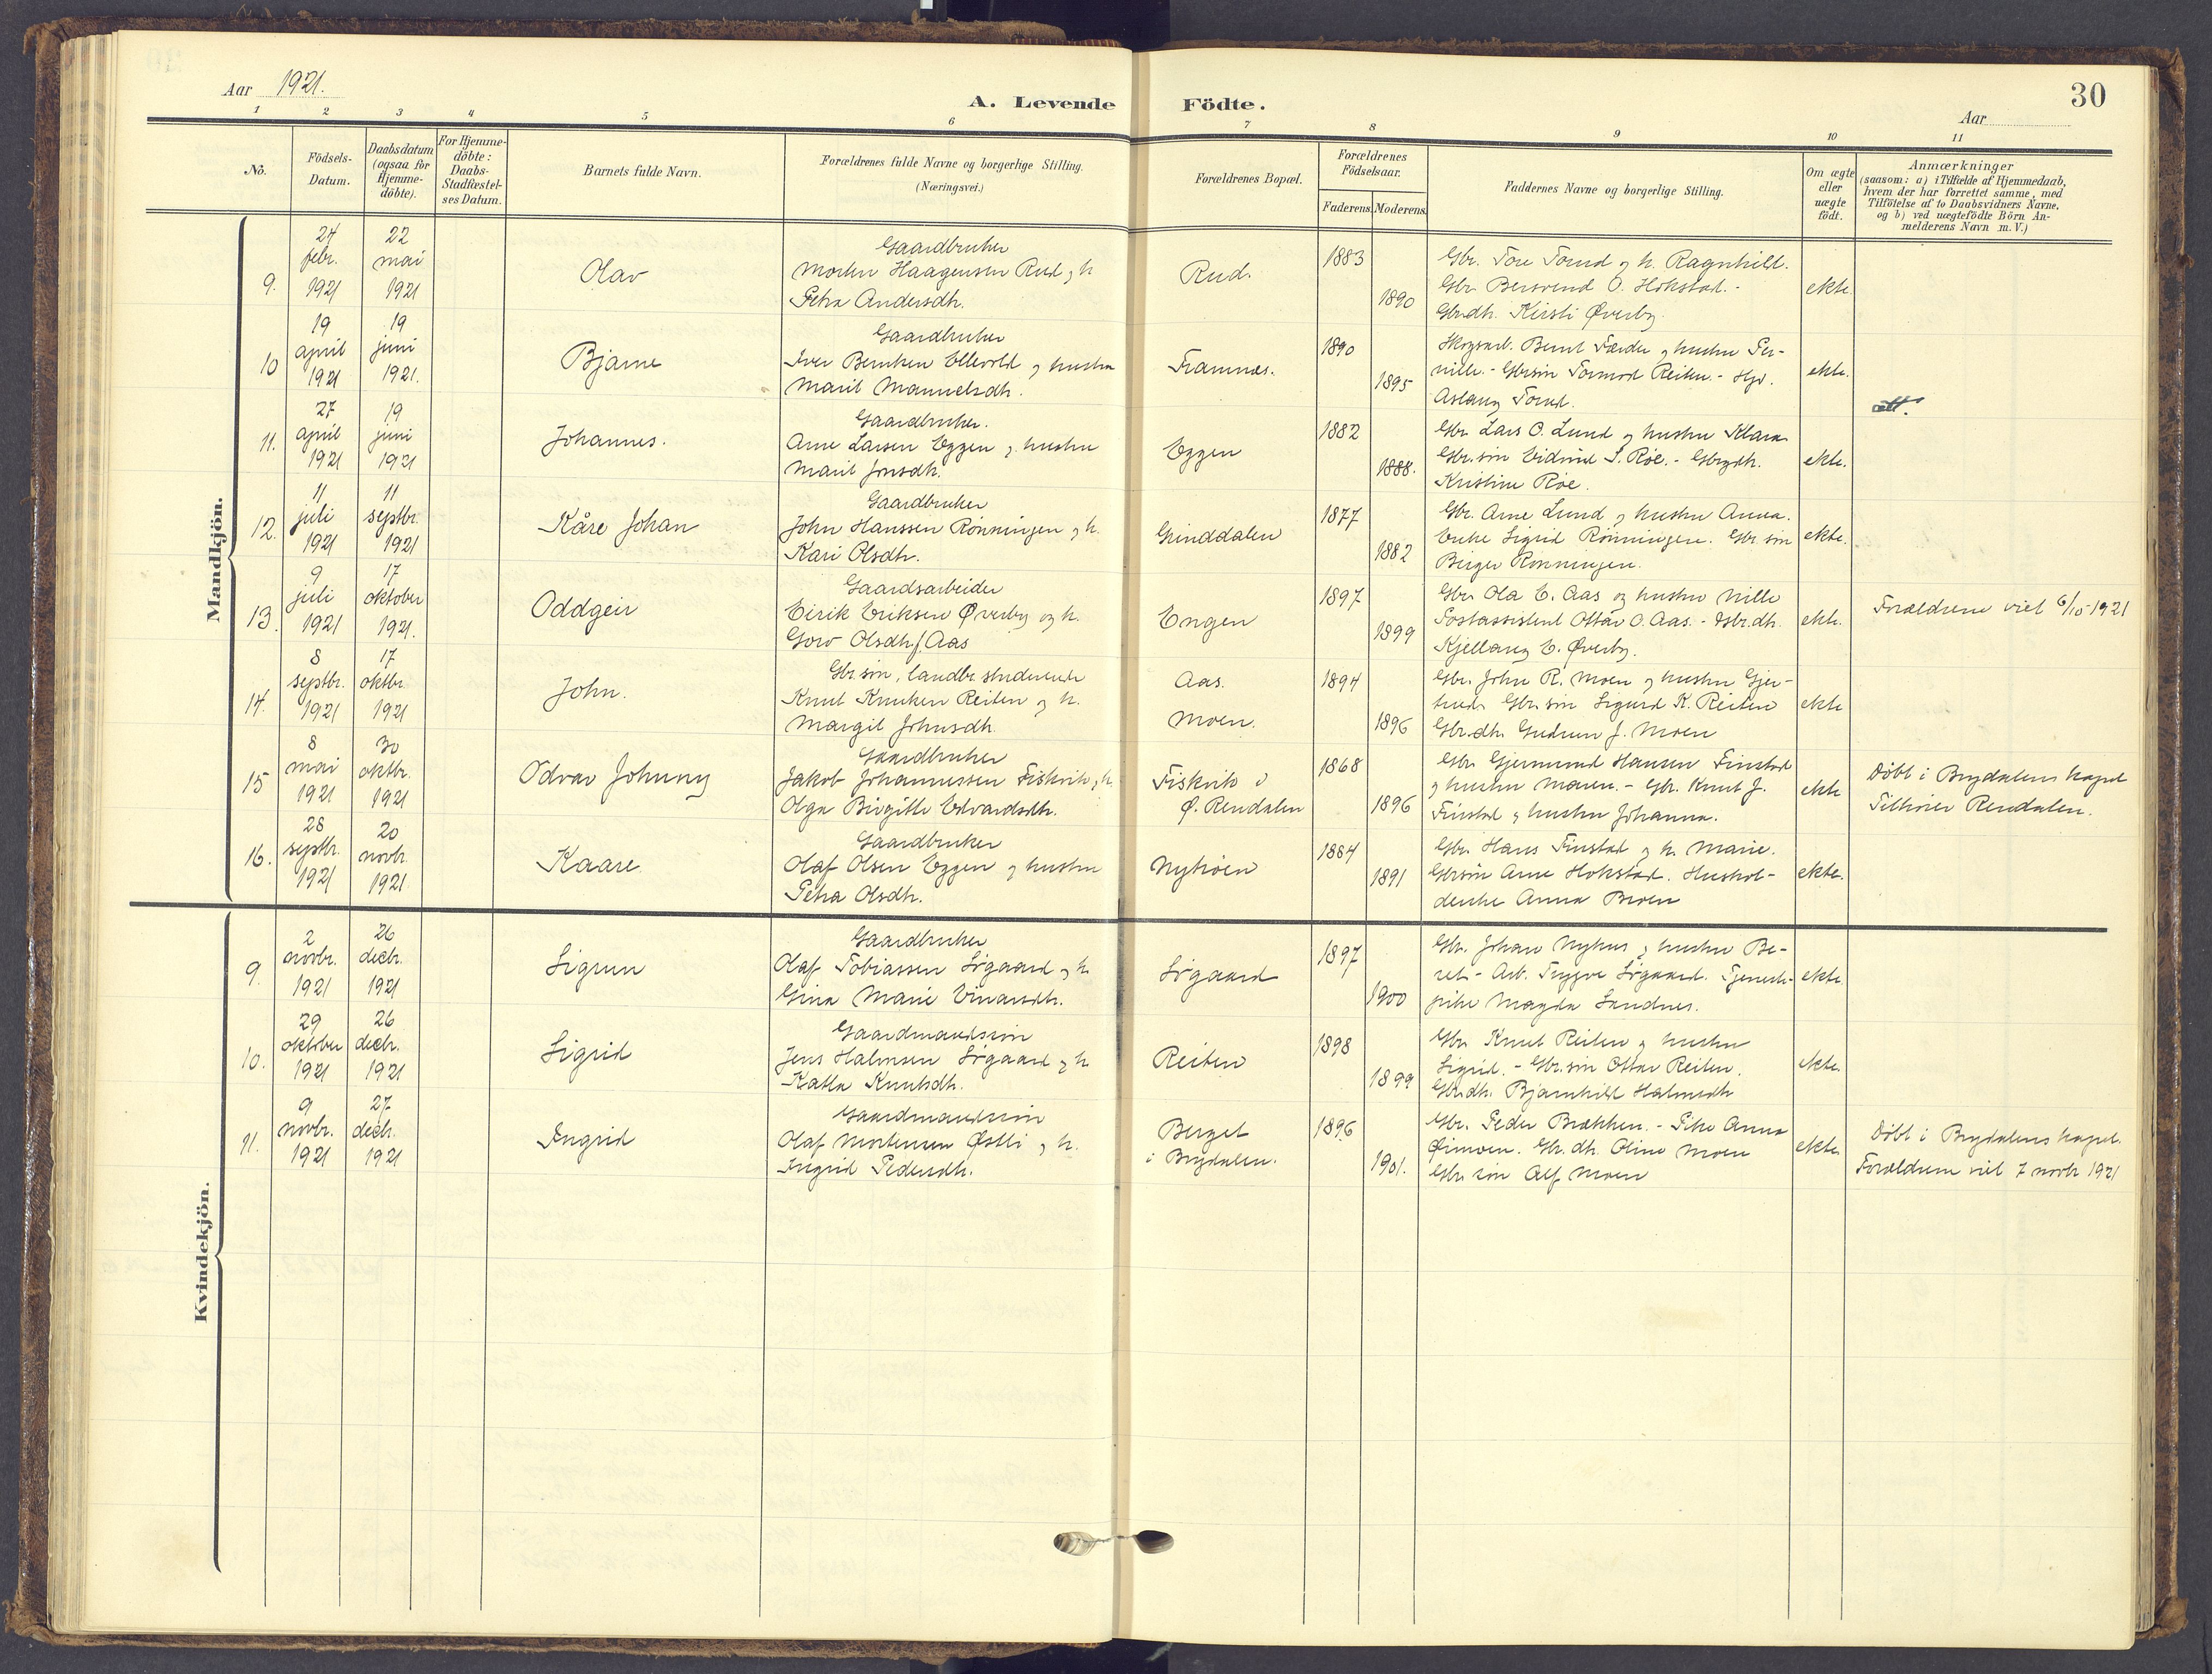 Aar 1921.
A. Levende Födte.
30
Aar
1 2 3 4 5 6 7 8 9 10 11
No.
Födsels-
Datum.
Daabsdatum
(ogsaa for
Hjemme-
döbte).
For Hjemme-
döbte:
Daabs-
Stadfæstel-
ses Datum.
Barnets fulde Navn.
Forældrenes fulde Navne og borgerlige Stilling.
(Næringsvei.)
Forældrenes Bopæl.
Forældrenes
Födselsaar.
Faderens. Moderens.
Faddernes Navne og borgerlige Stilling.
Om ægte
eller
uægte
födt.
Anmærkninger
(saasom: a) i Tilfælde af Hjemmedaab,
hvem der har forrettet samme, med
Tilföielse af to Daabsvidners Navne.
og b) ved uægtefödte Börn An-
melderens Navn m. V.)
Mandkjön.
9.
24
febr.
1921
22
mai
1921
Olav
Gaardbruker
Morten Haagensen Rud og h
Petra Andersdh.
Rud.
1883
1890
Gbr. Tore Torud og h. Ragnhild.
Gbr Bersvend O. Hokstad. -
Gbrdh. Kirsti Øverby.
ekte.
10
19
april
1921
19
juni
1921.
Bjarne
Gaardbruker
Iver Berntsen Ellevold og hustru
Marit Manuelsdh.
Framnes.
1890
1895
Skogsarb. Bernt Færder og hustru Per-
nille. - Gbrsön Tormod Reiten. -
Aslaug Torud.
ekte.
11.
27
april
1921
19
juni
1921
Johannes.
Gaardbruker.
Arne Larsen Eggen og hustru
Marit Jonsdh.
Eggen
1882
1888.
Gbr Lars O. Lund og hustru Klara
Gbr.sön Eidvind S. Røe. - Gbrdh.
Kristine Røe.
ekte.
att.
12.
11
juli
1921
11
septbr.
1921
Kåre Johan
Gaardbruker
John Hanssen Rønningen og h.
Kari Olsdh.
Grinddalen
1877
1882
Gbr. Arne Lund og hustru Anna.
Enke Sigrid Rønningen. Gbr sön
Birger Rønningen.
ekte.
13.
9
juli
1921
17
oktober
1921.
Oddgeir
Gaardsarbeider
Eirik Eriksen Øverby og h.
Goro Olsdh. f. Aas
Engen
1897
1899
Gbr Ola E. Aas og hustru Nille
Postassistent Ottar O. Aas. - Gbr.dh.
Kjellaug E. Øverby.
ekte.
Forældrene viet 6/10-1921
14.
8
septbr.
1921
17
oktbr.
1921
John.
Gbr sön, landbr. studerende
Knut Knutsen Reiten og h.
Margit Johnsdh.
Aas.
Moen.
1894
1896
Gbr. John R. Moen og hustru Gjer-
trud. Gbr. sön Sigurd K. Reiten
Gbr.dh. Gudrun J. Moen
ekte
15
8
mai
1921
30
oktbr.
1921
Odvar Johnny
Gaardbruker
Jakob Johannessen Fiskvik og h.
Olga Birgitte Edvardsdh.
Fiskvik i
Ø. Rendalen
1868
1896
Gbr Gjermund Hansen Finstad
og hustru Maren. - Gbr. Knut J.
Finstad og hustru Johanna.
ekte
Døbt i Brydalens kapel
Tilhører Rendalen.
16.
28
septbr.
1921
20
novbr.
1921.
Kaare
Gaardbruker
Olaf Olsen Eggen og hustru
Petra Olsdh.
Nytrøen
1884
1891
Gbr. Hans Finstad og h. Marie.
Gbrsön Arne Hokstad. Hushol-
derske Anna Broen
ekte.
Kvindekjön.
9.
2
novbr.
1921
26
decbr.
1921
Sigrun
Gaardbruker
Olaf Tobiassen Søgaard og h.
Gina Marie Einarsdh.
Søgaard
1897
1900
Gbr. Johan Nyhus og hustru Be-
ret. - Arb. Trygve Søgaard. Tjeneste-
pike Magda Sandnes.
ekte.
10.
29
oktober
1921
26
decbr.
1921
Sigrid
Gaardmandssön
Jens Halvorsen Søgaard og h
Katla Knutsdh.
Reiten
1898
1899
Gbr Knut Reiten og hustru
Sigrid. - Gbr.sön Ottar Reiten.
Gbr.dh. Bjarnhild Halvorsdh
ekte.
11.
9
novbr.
1921
27
decbr.
1921
Ingrid
Gaardmandssön
Olaf Mortensen Østli og h.
Ingrid Pedersdh.
Berget
i Brydalen.
1896
1901.
Gbr. Peder Brækken. - Pike Anna
Øimoen. Gbr. dh. Oline Moen
Gbr sön Alf Moen
ekte.
Døbt i Brydalens kapel.
Forældrene viet 7 novbr 1921